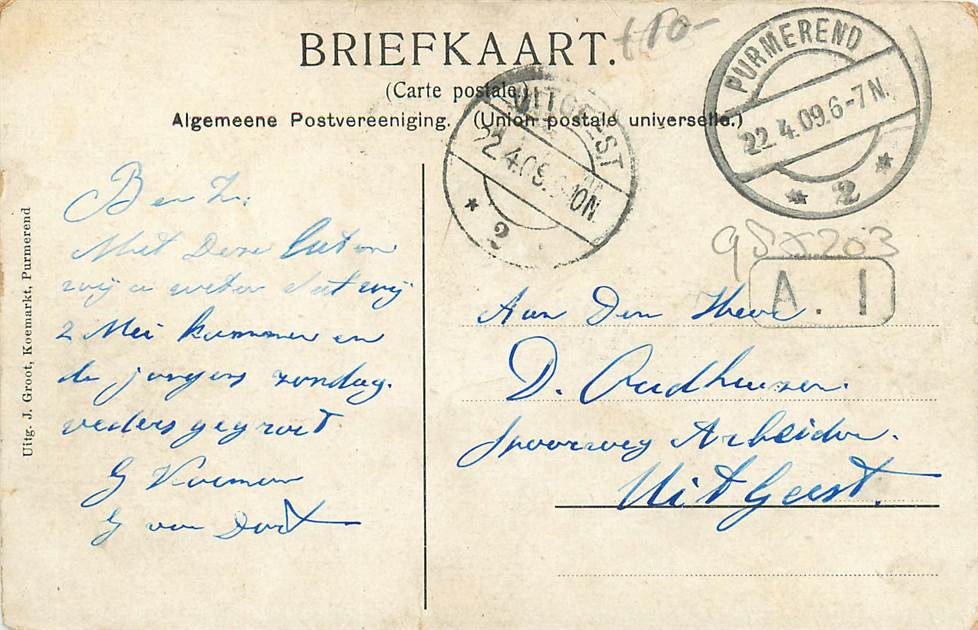 BRIEFKAART.
(Carte postale)
Algemeene Postvereeniging. (Union postale universelle.)
UITGEEST
22.4.09. 10N
2
PURMEREND
22.4.09.6-7N.
2
A. I
B en Z.
Met Deze laten
wij u weten dat wij
2 Mei kommen en
de jongens zondag.
veders gegroet
G
G van
Aan Den Heer
D. Oudhuizen.
spoorweg Arbeider.
UitGeest.
Uitg. J. Groot, Koemarkt, Purmerend